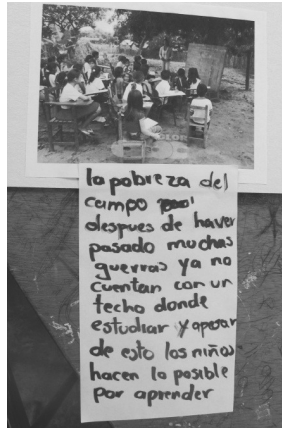 la pobreza del
campo
despues de haver
pasado muchas
guerras ya no
cuentan con un
techo donde
estudiar y apesar
de esto los niños
hacen lo posible
por aprender